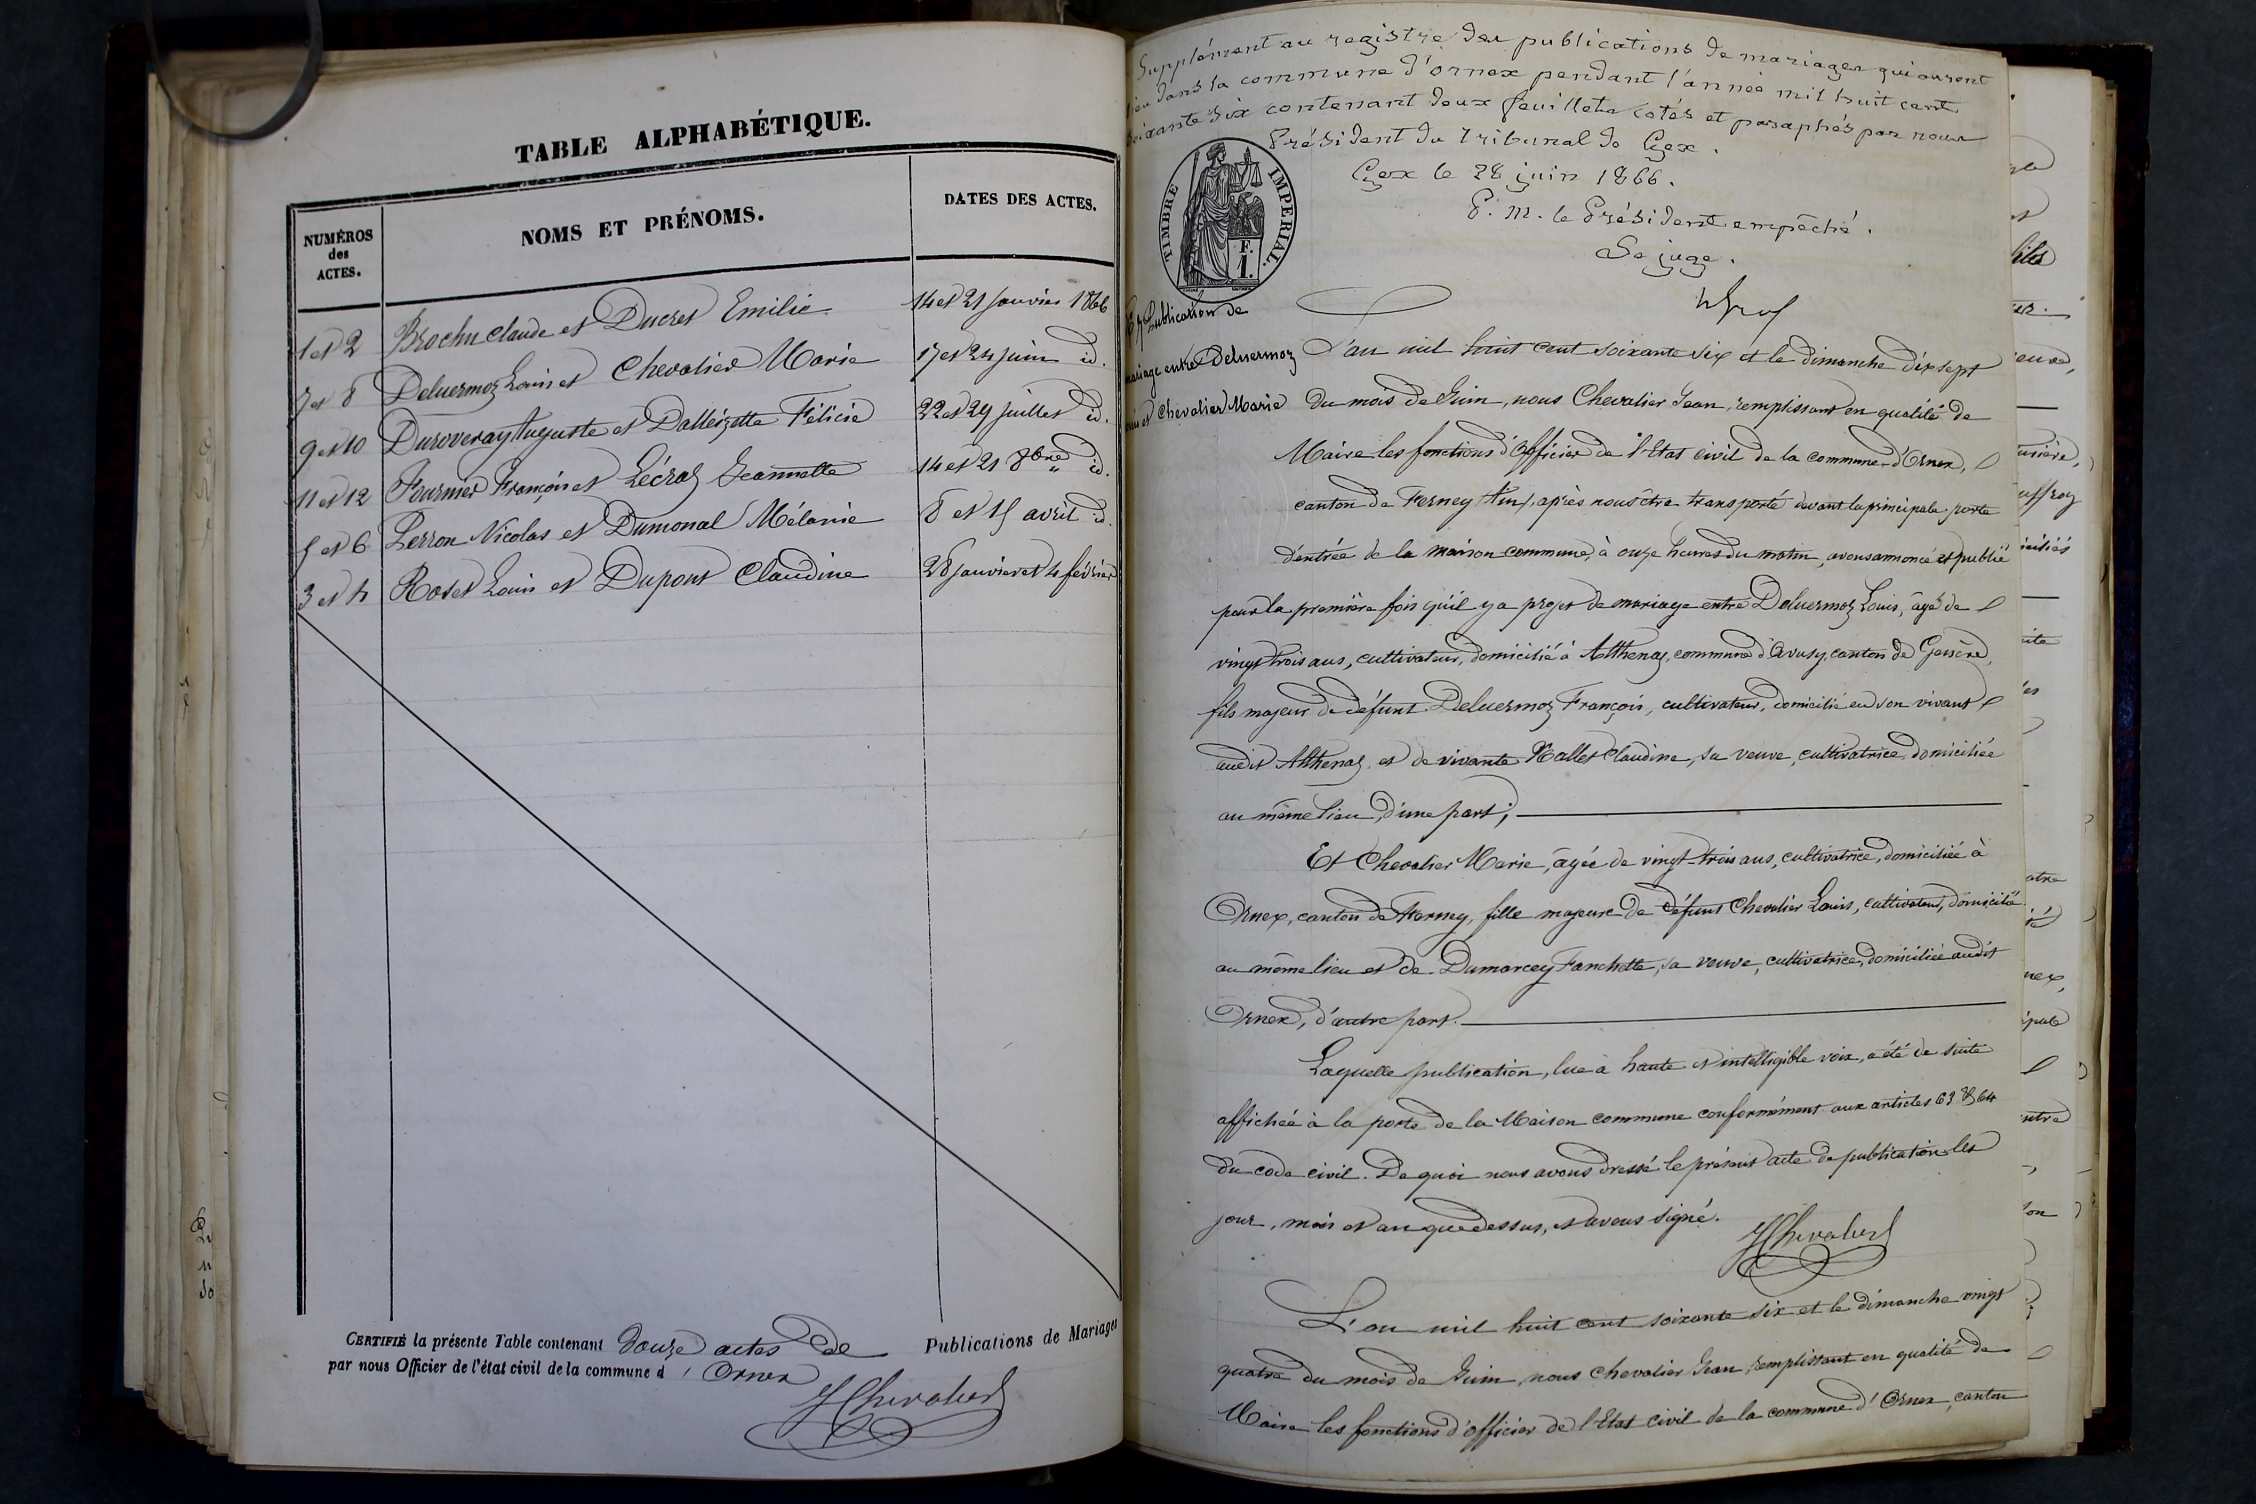 TABLE ALPHABÉTIQUE.
NUMÉROS des ACTES. NOMS ET PRÉNOMS. DATES DES ACTES.
1 et 2 Brochu Claude et Ducret Emilie 14 et 21 Janvier 1866
7 et 8 Deluermoz Louis et Chevalier Marie 17 et 24 Juin id.
9 et 10 Duroveray Auguste et Dalléizette Félicie 22 et 29 Juillet id.
11 et 12 Fournier François et Lécraz Jeannette 14 et 21 8bre id.
5 et 6 Perron Nicolas et Dumonal Mélanie 8 et 15 avril id.
3 et 4 Roset Louis et Dupont Claudine 28 Janvier et 4 février
CERTIFIÉ la présente Table contenant douze actes de Publications de Mariages
par nous Officier de l'état civil de la commune d'Ornex
J Chevalier
Supplément au registre des publications de mariages qui auront
lieu dans la commune d'ornex pendant l'année mil huit cent
soixante six contenant deux feuillets cotés et paraphés par nous
Président du Tribunal de Gex.
Gex le 28 juin 1866.
P. M. le Président empêché.
Le juge.
TIMBRE IMPERIAL.
F.
1.
Publication de
mariage entre Deluermoz
Louis et Chevalier Marie
L'an mil huit cent soixante six et le dimanche dix sept
du mois de Juin, nous Chevalier Jean, remplissant en qualité de
Maire les fonctions d'Officier de l'Etat civil de la commune d'Ornex,
canton de Ferney (Ain), après nous être transporté devant la principale porte
d'entrée de la maison commune, à onze heures du matin, avons annoncé et publié
pour la première fois qu'il y a projet de mariage entre Deluermoz Louis, âgé de
vingt trois ans, cultivateur, domicilié à Atthenaz, commune d'Avusy, canton de Genève,
fils majeur de défunt Deluermoz François, cultivateur, domicilié en son vivant
audit Atthenaz, et de vivante Claudine, sa veuve, cultivatrice, domiciliée
au même lieu, d'une part;
Et Chevalier Marie, âgée de vingt-trois ans, cultivatrice, domiciliée à
Ornex, canton de Ferney, fille majeure de défunt Chevalier Louis, cultivateur, domicilié
au même lieu et de Dumarcey Fanchette, sa veuve, cultivatrice, domiciliée audit
Ornex, d'autre part.
Laquelle publication, lue à haute et intelligible voix, a été de suite
affichée à la porte de la Maison commune conformément aux articles 63 & 64
du code civil. De quoi nous avons dressé le présent acte de publication les
jour, mois et an que dessus, et avons signé.
J Chevalier
L'an mil huit cent soixante six et le dimanche vingt
quatre du mois de Juin, nous Chevalier Jean, remplissant en qualité de
Maire les fonctions d'officier de l'Etat civil de la commune d'Ornex, canton